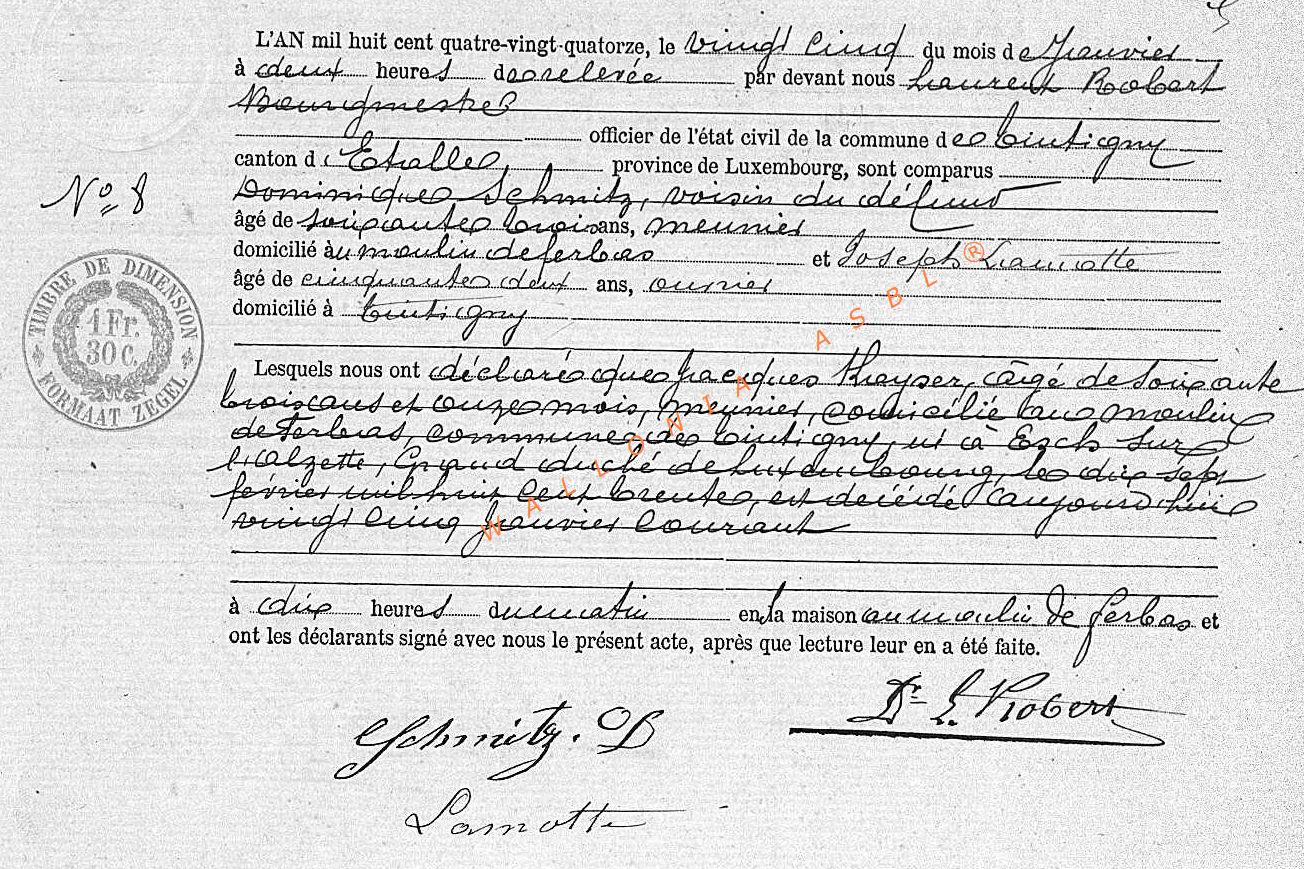 L'AN mil huit cent quatre-vingt-quatorze, le vingt cinq du mois de Janvier
à deux heures de relevée par devant nous Laurent Robert
Bourgmestre
officier de l'état civil de la commune de Tintigny
canton d'Etalle province de Luxembourg, sont comparus
Dominique Schmitz, voisin du défunt
âgé de soixante trois ans, meunier
domicilié au moulin de ferbas et Joseph Lamotte
Nº 8
âgé de cinquante deux ans, ouvrier
domicilié à Tintigny
TIMBRE DE DIMENSION
1 Fr.
30 C.
FORMAAT ZEGEL
Lesquels nous ont déclaré que Jacques Kayser, âgé de soixante
trois ans et onze mois, meunier, domicilié au moulin
de Ferbas, commune de Tintigny, né à Esch sur
l'Alzette, Grand duché de Luxembourg, le dix sept
février mil huit cent trente, est décédé aujourd'hui
vingt cinq janvier courant
à dix heures du matin en la maison au moulin de ferbas et
ont les déclarants signé avec nous le présent acte, après que lecture leur en a été faite.
Dr L. Robert
Schmitz. D
Lamotte
WALLONIA ASBL ®